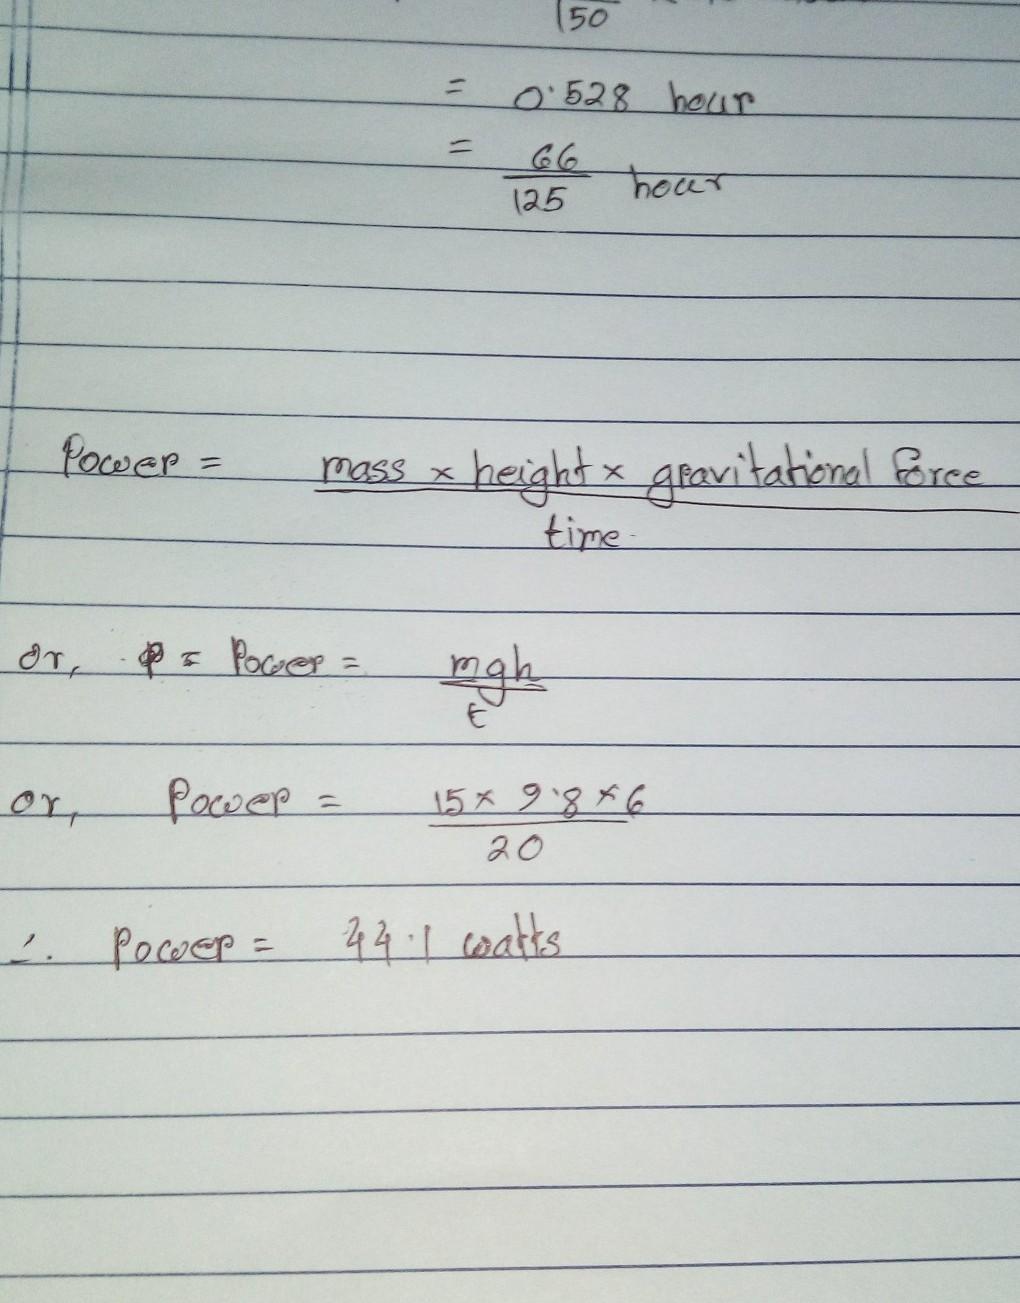 150
= 0.528 hour
= 66/125 hour
Power = mass × height × gravitational force
time.
or, P = Power = mgh/t
or, Power = 15 × 9.8 × 6/20
∴ Power = 44.1 watts